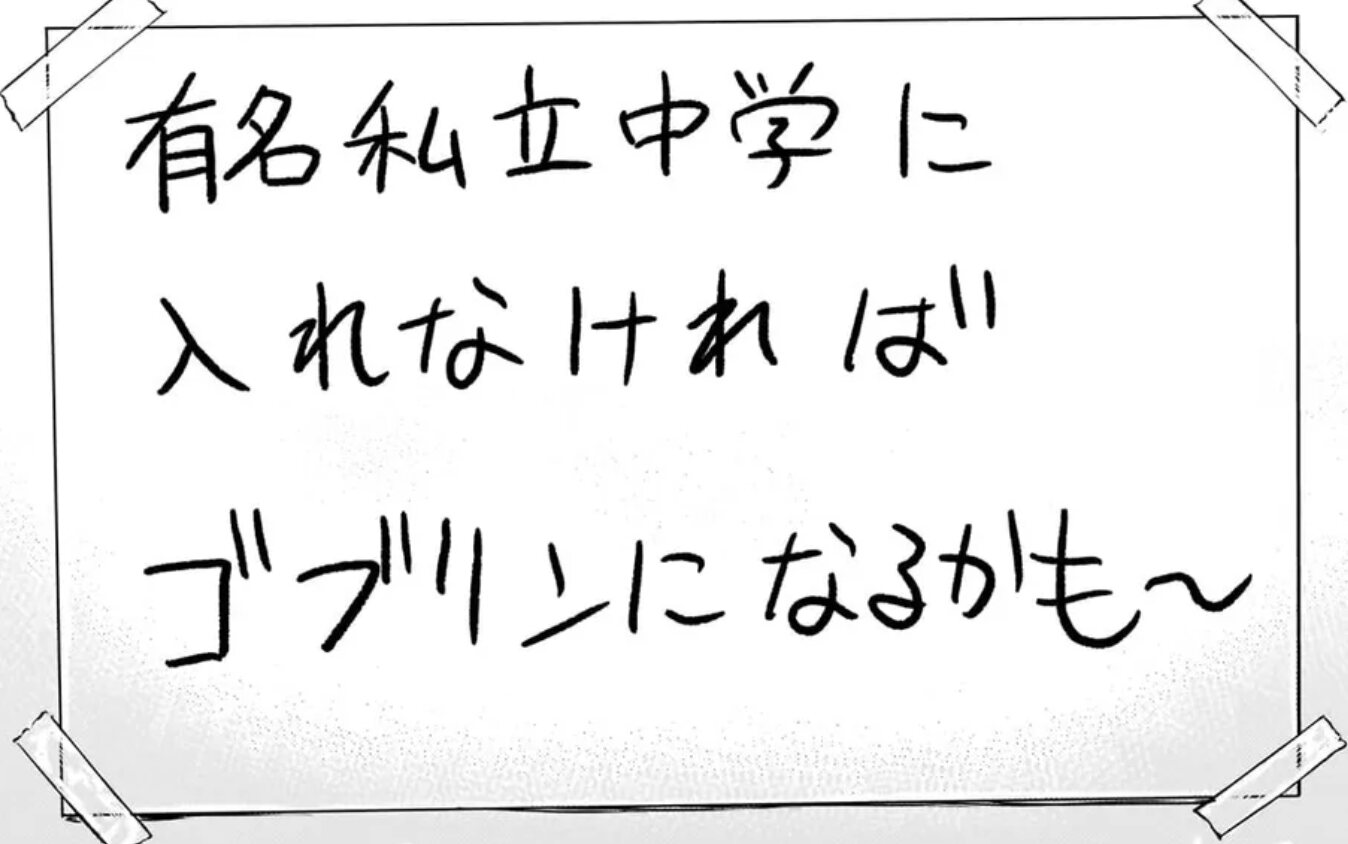 有名私立中学に
入れなければ
ゴブリンになるかも～